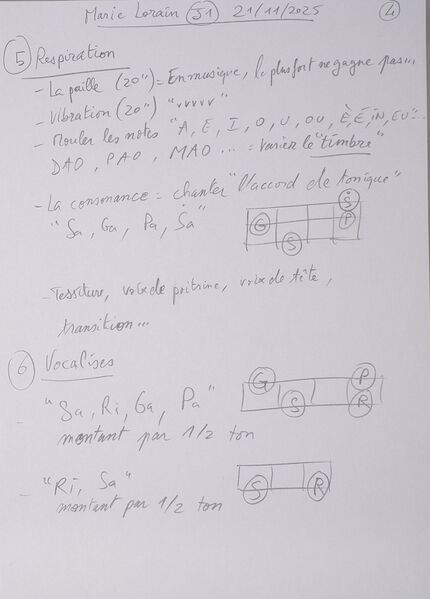 Marie Lorain J1 21/11/2025 4
5 Respiration
- La paille (20") = En musique, le plus fort ne gagne pas...
- Vibration (20") "vvvvv"
- Mouler les notes "A, E, I, O, U, OU, È, É, IN, EU"...
DAO, PAO, MAO ... = varier le "timbre"
- La consonance = chanter "l'accord de tonique"
"Sa, Ga, Pa, Ṡa"
Ṡ
G P
S
- Tessiture, voix de poitrine, voix de tête,
transition...
6 Vocalises
- "Sa, Ri, Ga, Pa"
montant par 1/2 ton
G P
S R
- "Ri, Sa"
montant par 1/2 ton
S R